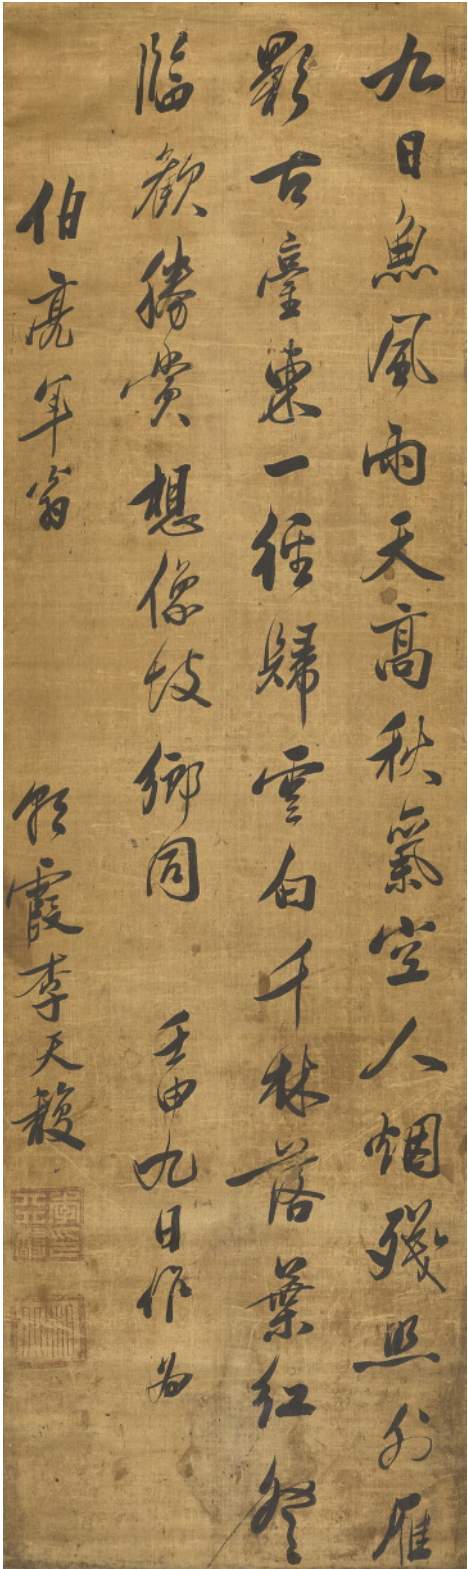 九日魚風雨天高秋氣空人烟殘照外雁
影古臺東一徑歸雲白千林落葉紅登
臨歡勝賞想像故鄉同 壬申九日作為
伯亮年翁
霞李天馥